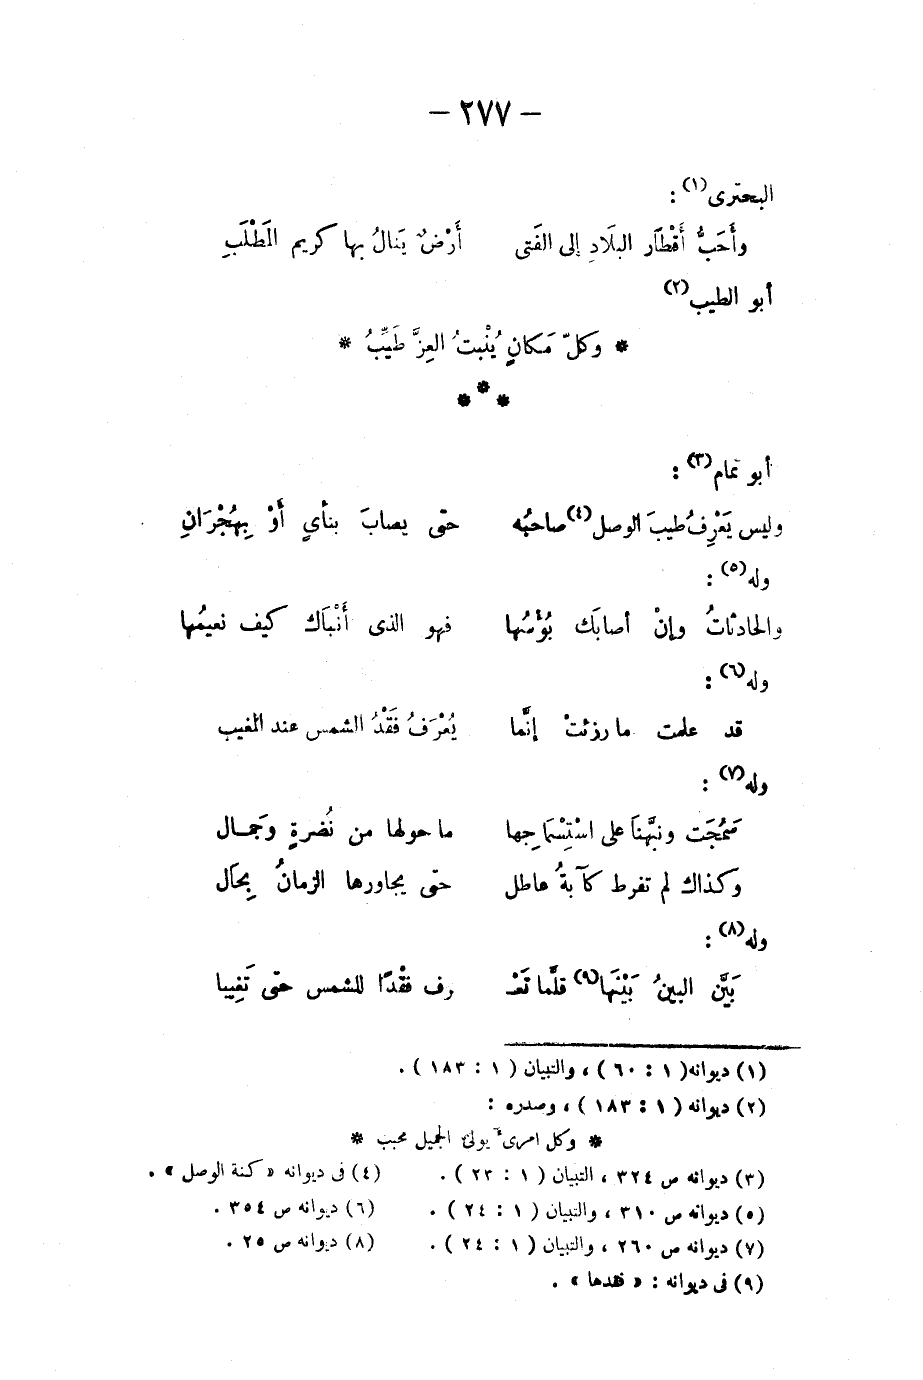 — ٢٧٧ —
البحترى(١) :
وأَحَبُّ أَقْطَار البلَادِ إلى الفَتى أَرْضٌ يَنالُ بها كريم المَطْلَبِ
أبو الطيب(٢)
* وكلّ مَكانٍ يُنْبتُ العِزَّ طَيِّبُ *
* * *
أبو تمام(٣) :
وليس يَعْرِفُ طيبَ الوصل(٤) صاحبُه حتّى يصابَ بنأىٍ أَوْ بِهِجْرَانِ
وله(٥) :
والحادثاتُ وإنْ أصابَك بُؤْسُها فهو الذى أَنْبَاك كيف نعيمُها
وله(٦) :
قد علمت ما رزئتْ إنَّما يُعْرَفُ فَقْدُ الشمس عند المغيب
وله(٧) :
سَمُجَت ونبَّهنَا على اسْتِسْمَاجِها ما حولها من نُضرةٍ وجَمـال
وكذاك لم تفرط كآبةُ عاطل حتى يجاورها الزمانُ بِحَال
وله(٨) :
بَيَّن البينُ بَيْنَها(٩) قلَّما تَعْـ رف فقْدًا للشمس حتّى تَغِيبا
(١) ديوانه( ١ : ٦٠ ) ، والتبيان ( ١ : ١٨٣ ) .
(٢) ديوانه ( ١ : ١٨٣ ) ، وصدره :
* وكل امرىءٍ يولى الجميل محبب *
(٣) ديوانه ص ٣٢٤ ، التبيان ( ١ : ٢٣ ) . (٤) فى ديوانه «كنة الوصل» .
(٥) ديوانه ص ٣١٠ ، والتبيان ( ١ : ٢٤ ) . (٦) ديوانه ص ٣٥٤ .
(٧) ديوانه ص ٢٦٠ ، والتبيان ( ١ : ٢٤ ) . (٨) ديوانه ص ٢٥ .
(٩) فى ديوانه : « فقدها » .